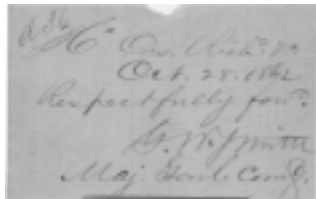 Hd Qrs. Rich. Va
Oct. 28. 1862
Respectfully forw.
G. W. Smith
Maj. Genl. Comdg.